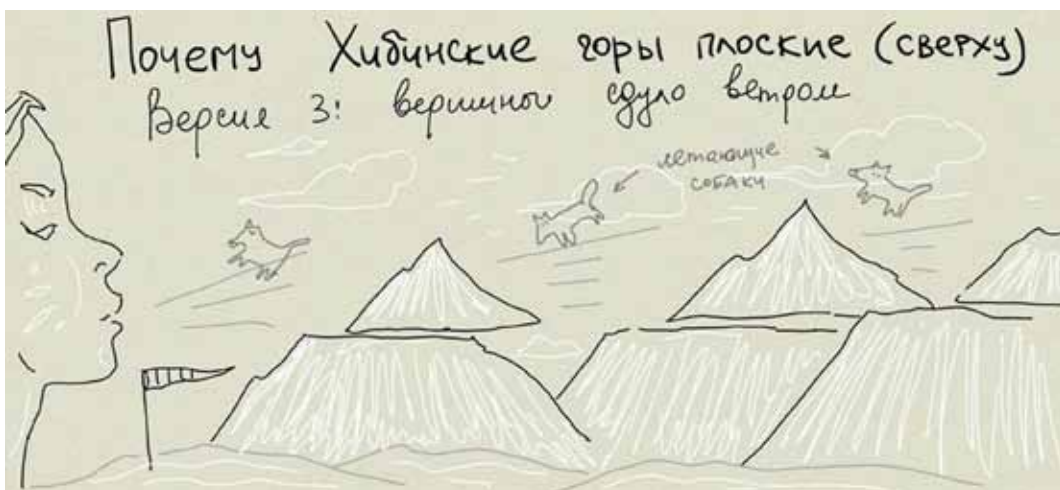 Почему Хибинские горы плоские (сверху)
Версия 3: вершины сдуло ветром
летающие
собаки